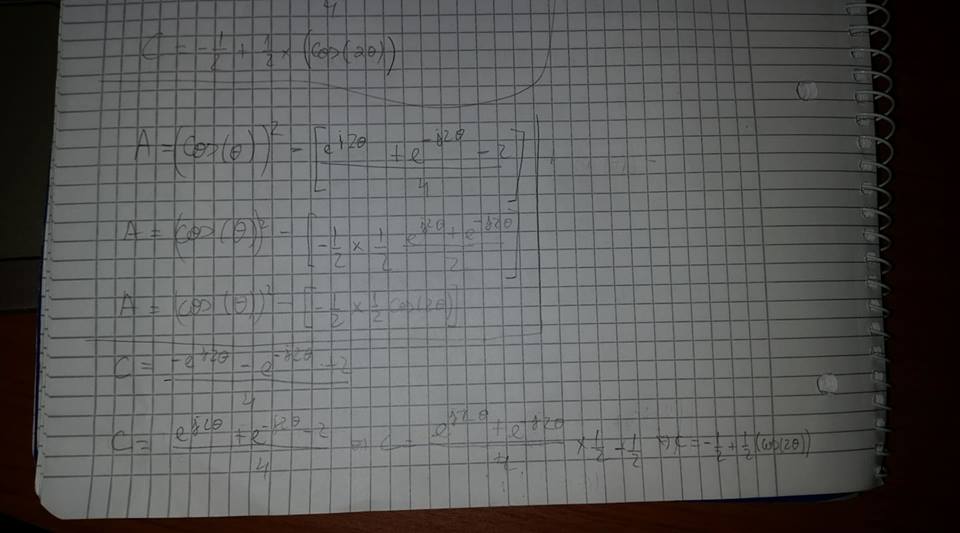 4
C = -1/2 + 1/2 × (cos(2θ))
A = (cos(θ))² - [e^{j2θ} + e^{-j2θ} - 2 / 4]
A = (cos(θ))² - [-1/2 × 1/2 e^{j2θ} + e^{-j2θ} / 2]
A = (cos(θ))² - [-1/2 × 1/2 cos(2θ)]
C = -e^{j2θ} - e^{-j2θ} + 2 / 4
C = e^{j2θ} + e^{-j2θ} - 2 / 4 ⇔ C = e^{j2θ} + e^{-j2θ} / 4 × 1/2 - 1/2 ⇔ C = -1/2 + 1/2 (cos(2θ))